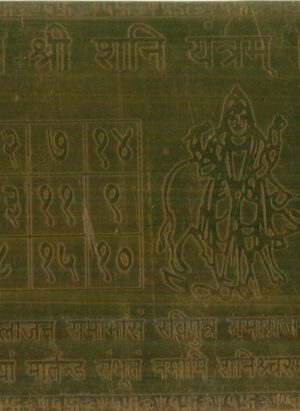 श्री शनि यंत्रम्
२ ७ १४
३ ११ ९
८ १५ १०
लाजन् समाभासं रविपुत्र यमाग्रज
यां मार्तन्ड संभूतं नमामि शनिश्चर